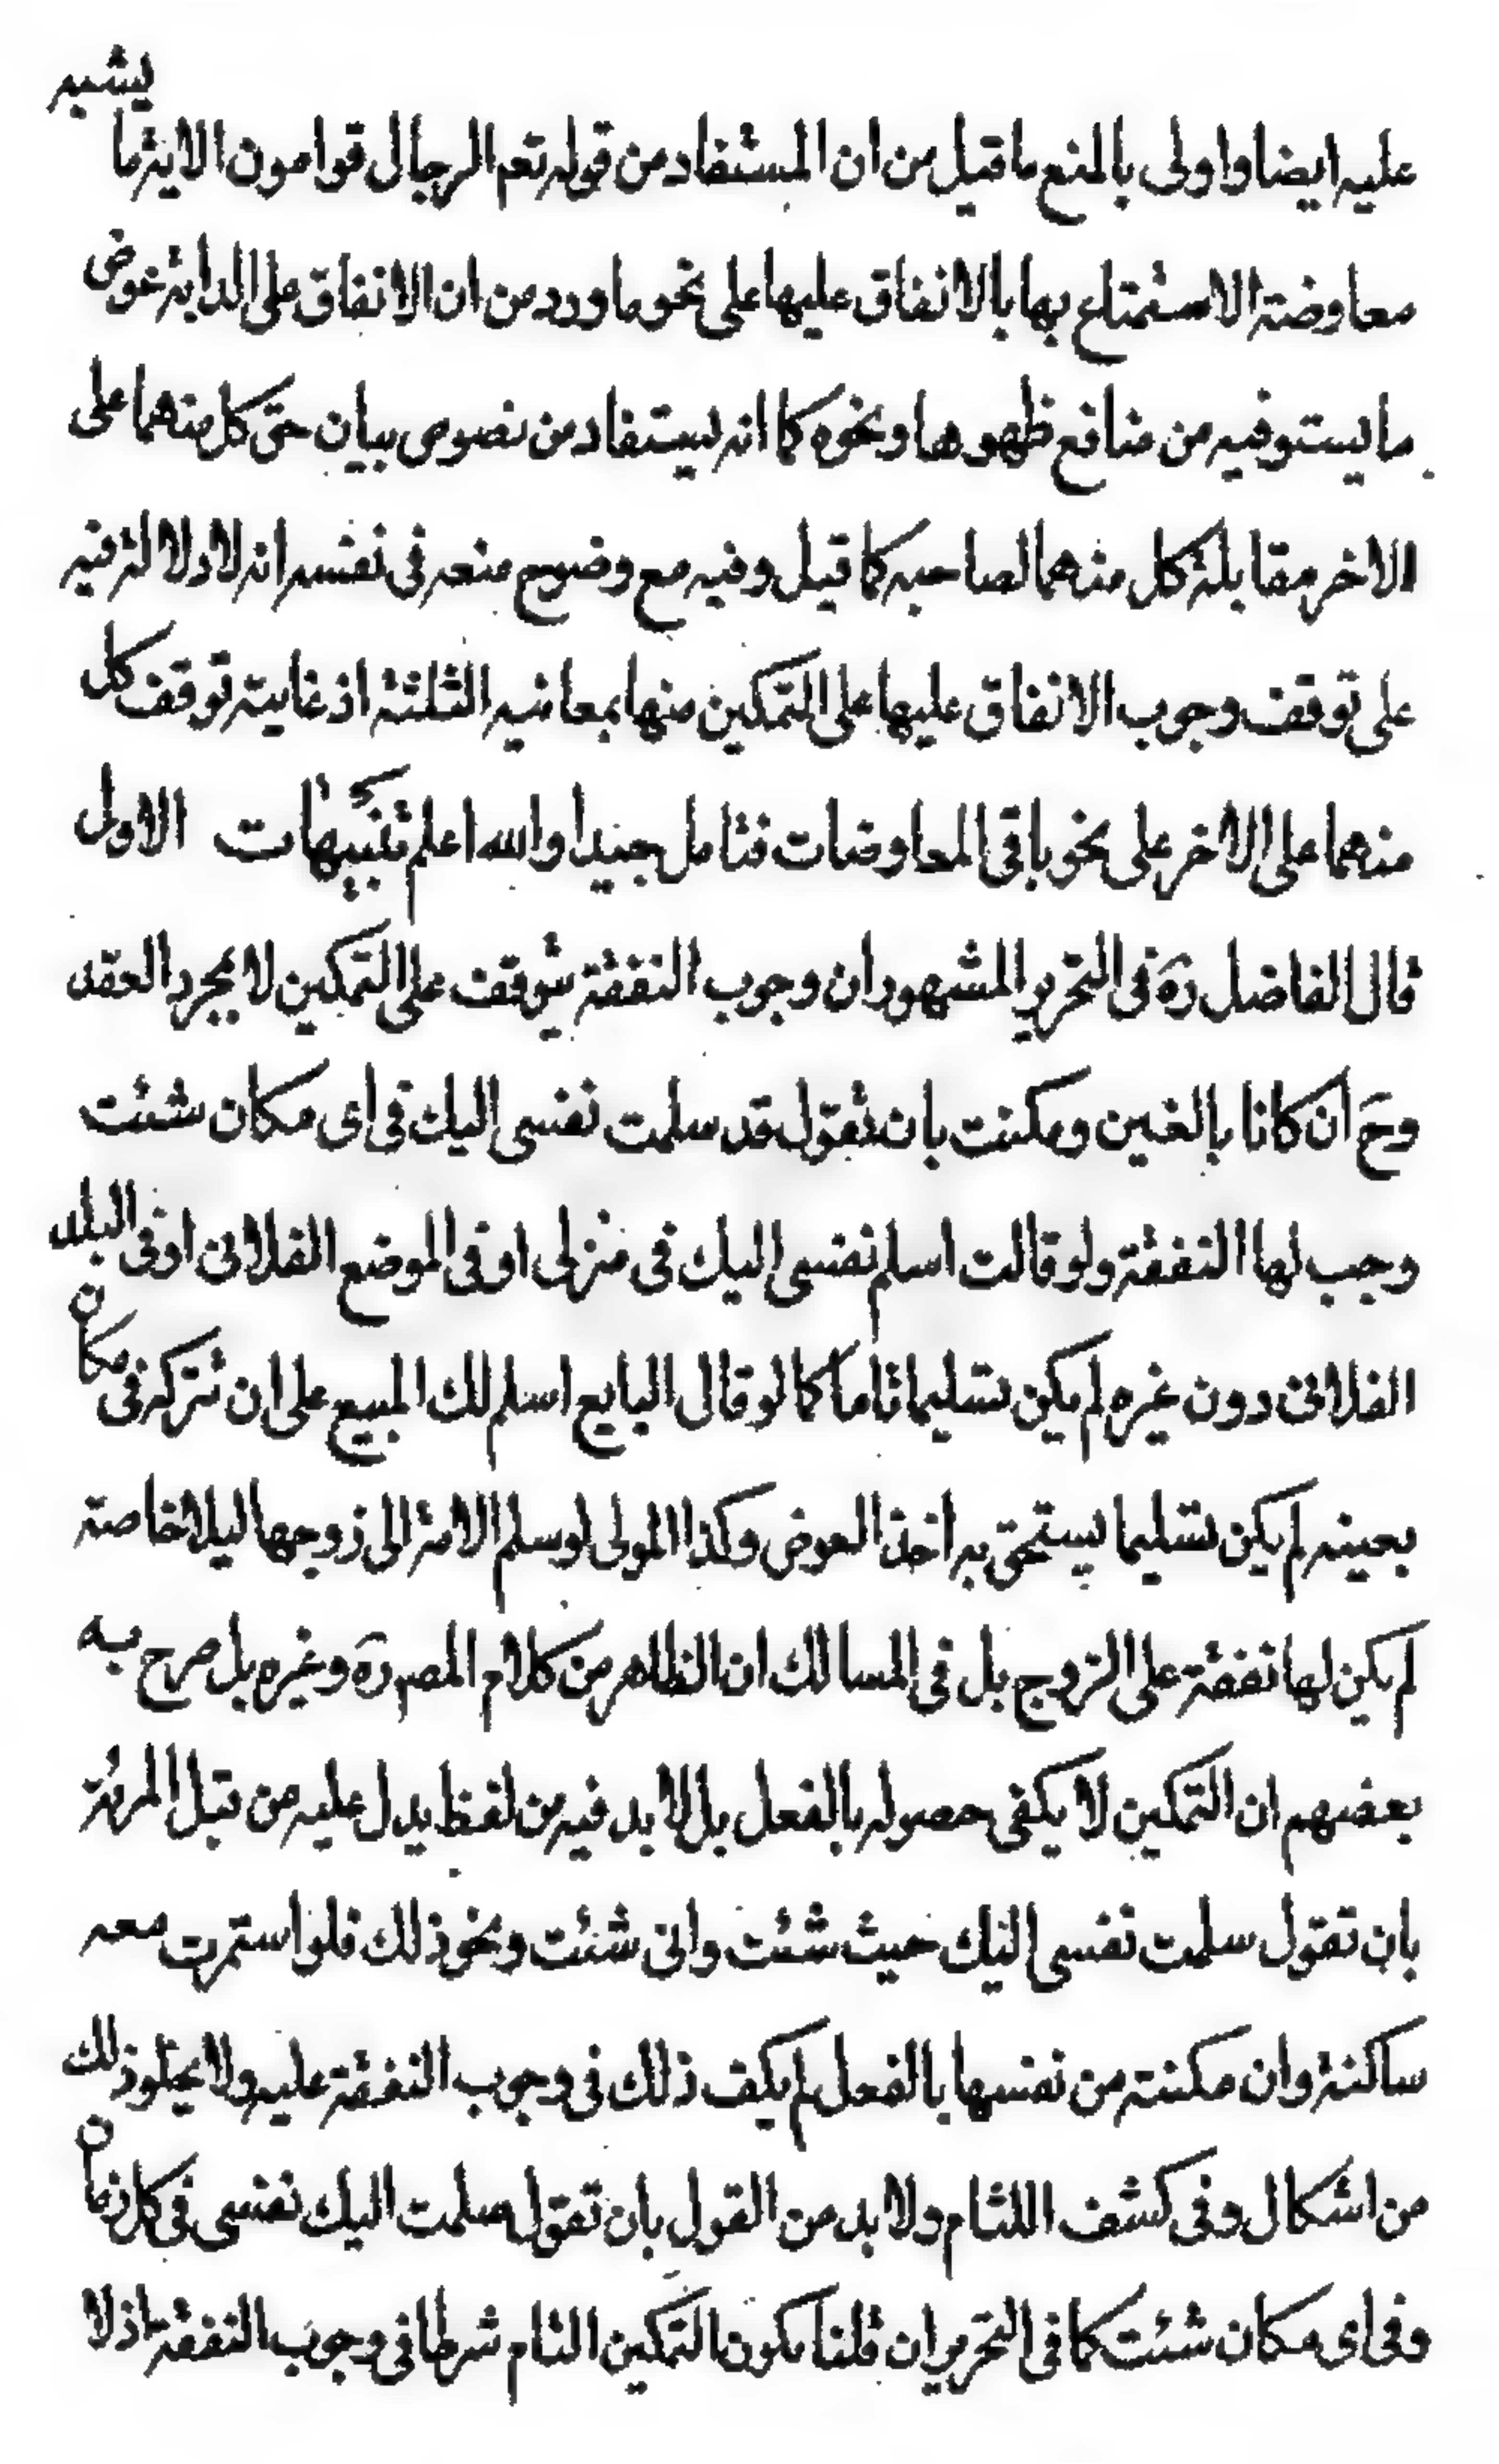 عليه ايضا واولى بالمنع ما قيل من ان المستفاد من قوله تعم الرجال قوامون الاية ما يشبه
معاوضة الاستمتاع بها بالانفاق عليها على نحو ما ورد من ان الانفاق على الدابة عوض
ما يستوفيه من منافع ظهورها ونحوه كما انه يستفاد من نصوص بيان حق كل منهما على
الاخر مقابلة كل منهما لصاحبه كما قيل وفيه مع وضوح منعه فى نفسه انه لا دلالة فيه
على توقف وجوب الانفاق عليها على التمكين منها بمعانيه الثلثة اذ غايته توقف كل
منهما على الاخر على نحو باقى المعاوضات فتامل جيدا والله اعلم تنبيهات الاول
قال الفاضل ره فى التحرير المشهور ان وجوب النفقة يتوقف على التمكين لا بمجرد العقد
وح ان كانا بالغين ومكنت بان تقول قد سلمت نفسى اليك فى اى مكان شئت
وجب لها النفقة ولو قالت اسلم نفسى اليك فى منزلى او فى الموضع الفلانى او فى البلد
الفلانى دون غيره لم يكن تسليما تاما كما لو قال البايع اسلم لك المبيع على ان تتركه فى مكان
بعينه لم يكن تسليما يستحق به اخذ العوض وكذا المولى لو سلم الامة الى زوجها ليلا خاصة
لم يكن لها نفقة على الزوج بل فى المسالك ان الظاهر من كلام المص ره وغيره بل صرح به
بعضهم ان التمكين لا يكفى حصوله بالفعل بل لا بد فيه من لفظ يدل عليه من قبل المرئة
بان تقول سلمت نفسى اليك حيث شئت وانى شئت ونحو ذلك فلو استمرت معه
ساكتة وان مكنته من نفسها بالفعل لم يكف ذلك فى وجوب النفقة عليه ولا يخلو ذلك
من اشكال وفى كشف اللثام ولا بد من القول بان تقول سلمت اليك نفسى فى كل زمان
وفى اى مكان شئت كما فى التحرير ان قلنا بكون التمكين التام شرطا فى وجوب النفقة اذ لا